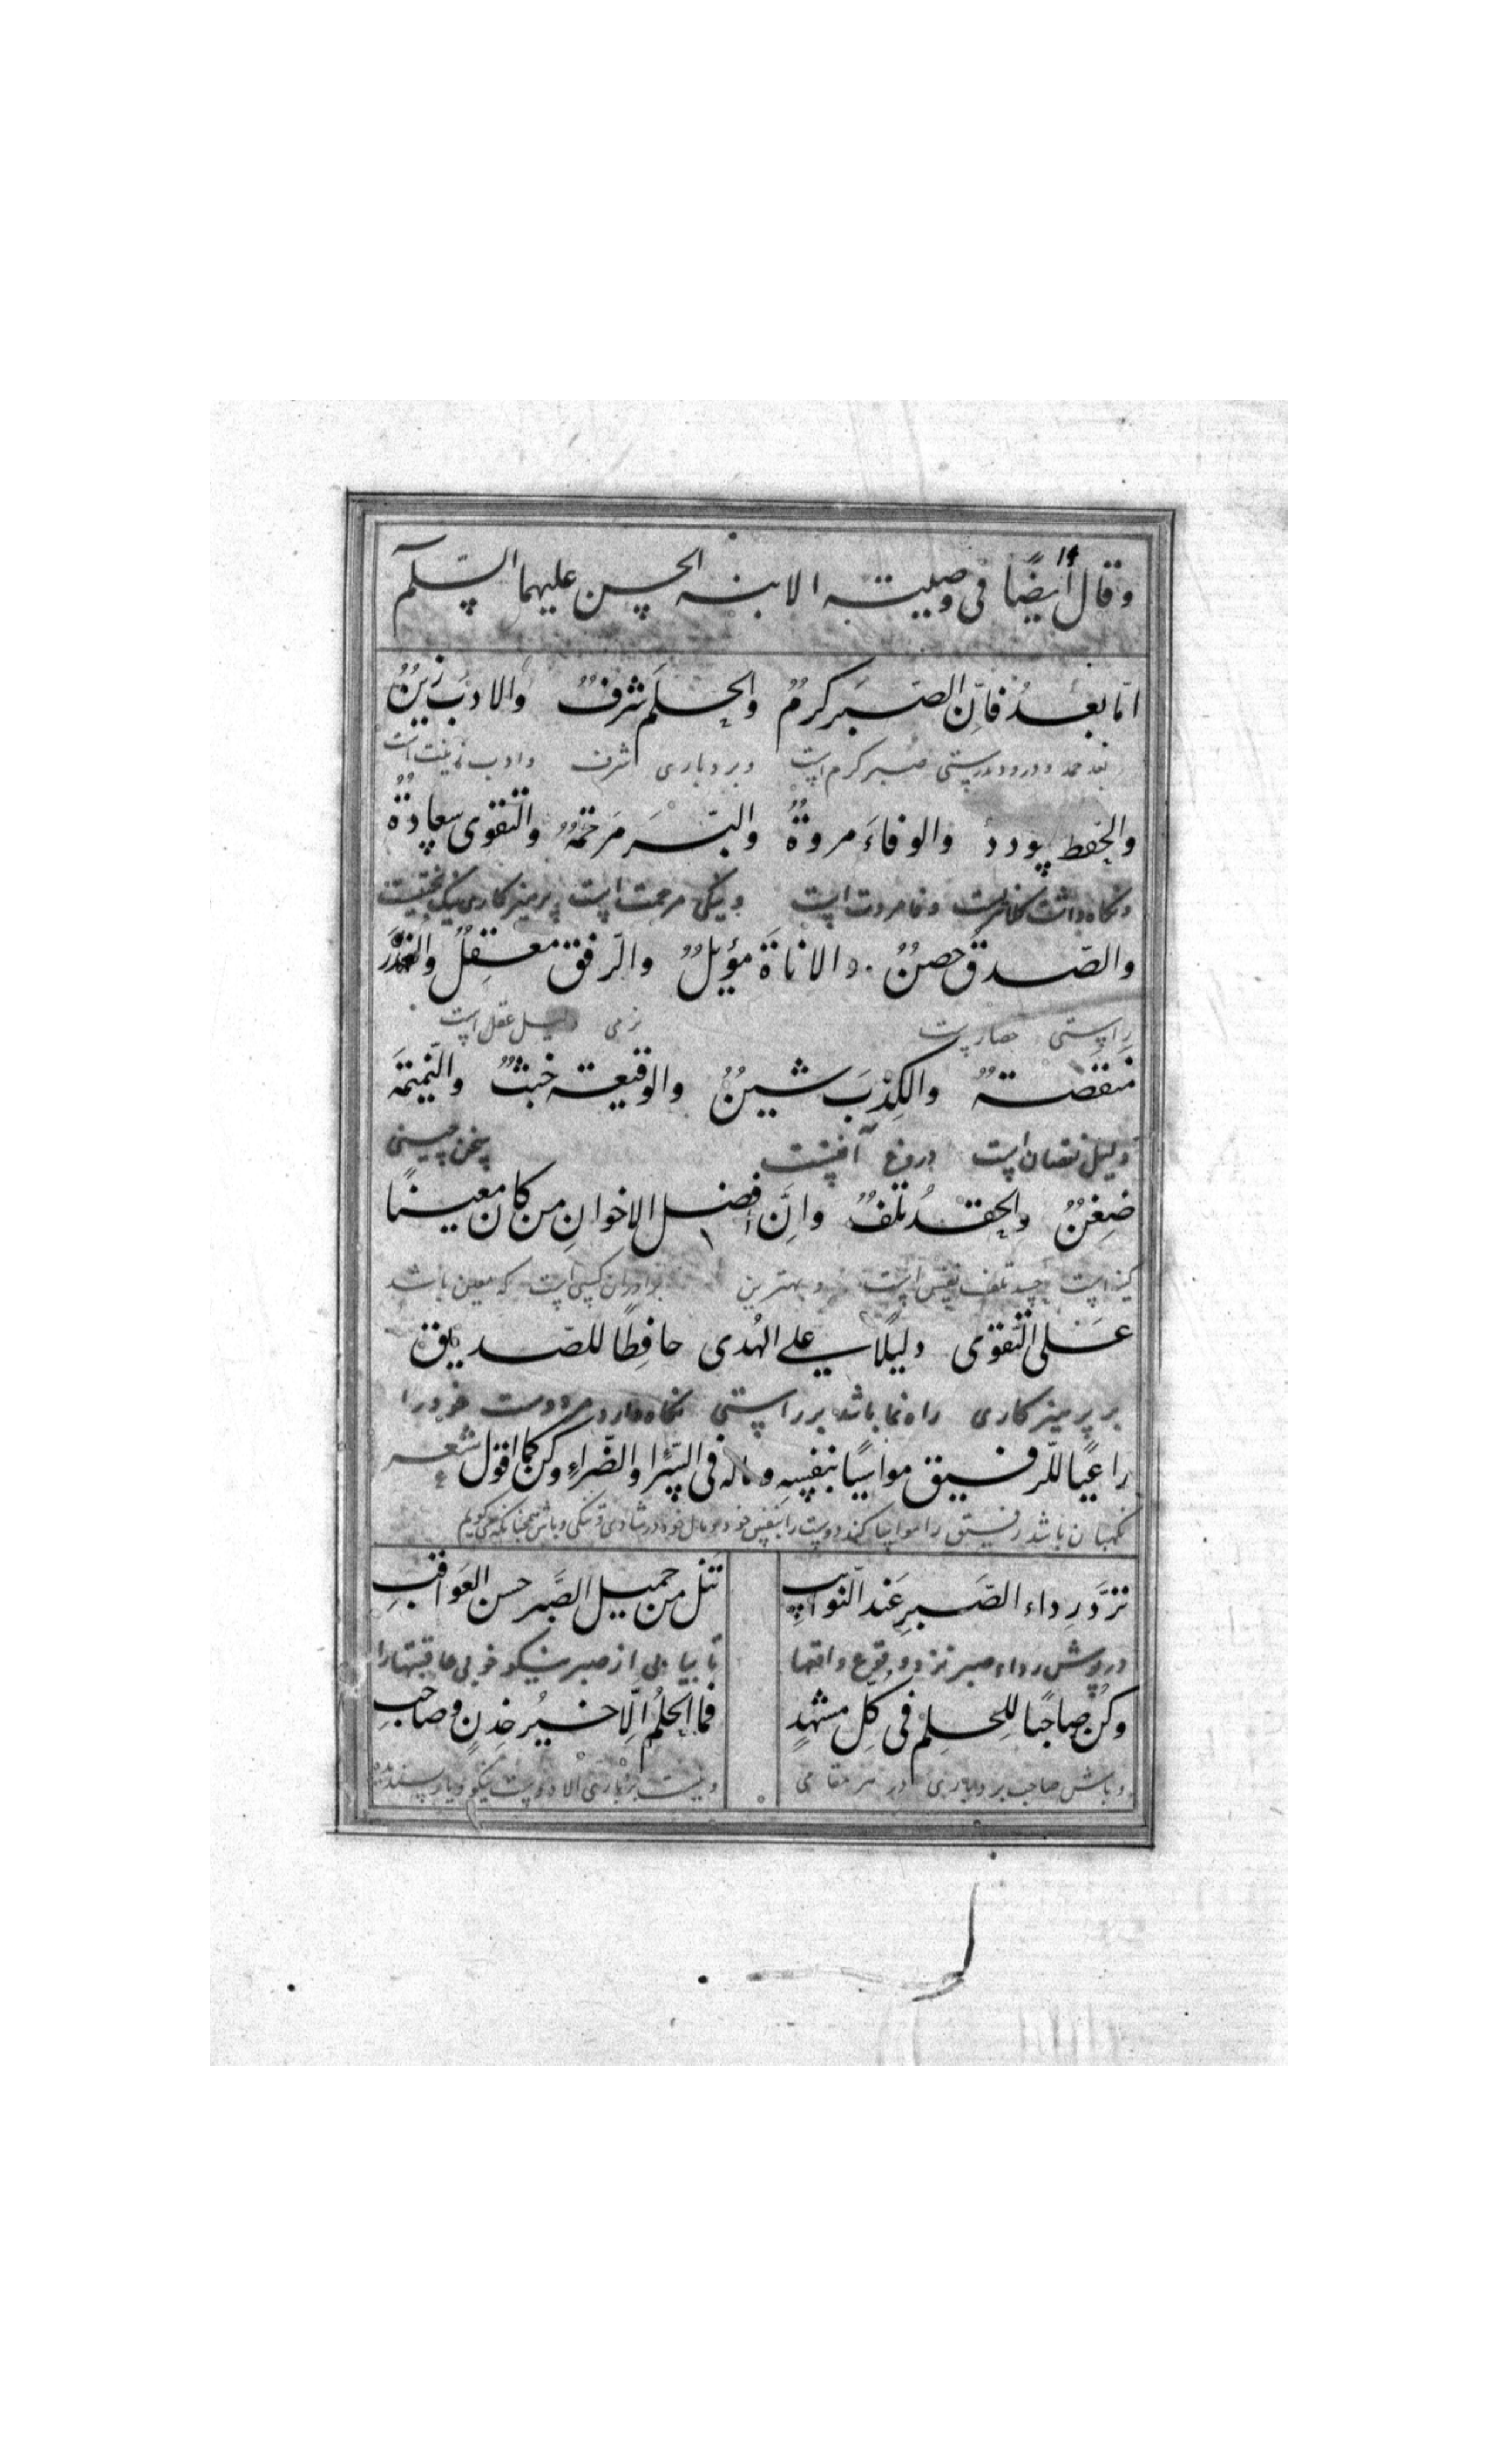 وقال أيضًا فی وصیته الابنه الحسن علیهما السّلم
امّا بعدُ فاِنّ الصّبَر کرمٌ والحلَم شرفٌ والادبَ زینٌ
بعد حمد ودرود بدرستی صبر کرم است وبردباری شرف وادب زینت است
والحفظ سودد والوفاءَ مروةٌ والبّرَ مَرحمَةٌ والتّقوی سعادةٌ
ونکاه داشتن وفا مروت است ونیکی مرحمت است پرهیزکاری نیک بختیست
والصّدقَ حصنٌ والاناةَ مؤیلٌ والرّفق معقِلٌ والغدَر
راستی حصارست نرمی دلیل عقل است
مَنقَصَةٌ والکِذبَ شینٌ والوقیعة خبثٌ والنّمیمَة
دلیل نقصان است دروغ آفتست سخن چینی
ضِغنٌ والحقدُ تلفٌ واِنَّ افضل الاخوانِ من کان معینًا
کینه است حسد تلف نفس است وبهترین برادران کسی است که معین باشد
عَلی التّقوی دلیلًا علی الهُدی حافِظًا للصّدیق
بر پرهیزکاری راه نما باشد بر راستی نکاه دارد مر دوست خود را
راعیًا للّرفیق مواسیًا بنفسِهِ وماله فی السّرا والضّراءِ وکن کما اقول شعر
نکهبان باشد رفیق را مواسا کند دوست را بنفس خود ومال خود در شادی وتنکی وباش همچنانکه میکویم
تردَّ رِداء الصّبرِ عَند النّوائبِ
تنل من جمیل الصّبر حسن العَواقبِ
در پوش رداء صبر نزد وقوع واقعها
تا بیابی از صبر نیکو خوبی عاقبتها را
وکُن صاحبًا لِلحلمِ فی کلِّ مشهدٍ
فما الحلمُ الّا خیرُ خِدنٍ وصاحبِ
وباش صاحب بردباری در هر مقامی
ونیست بردباری الا دوست نیکو ویار پسندیده